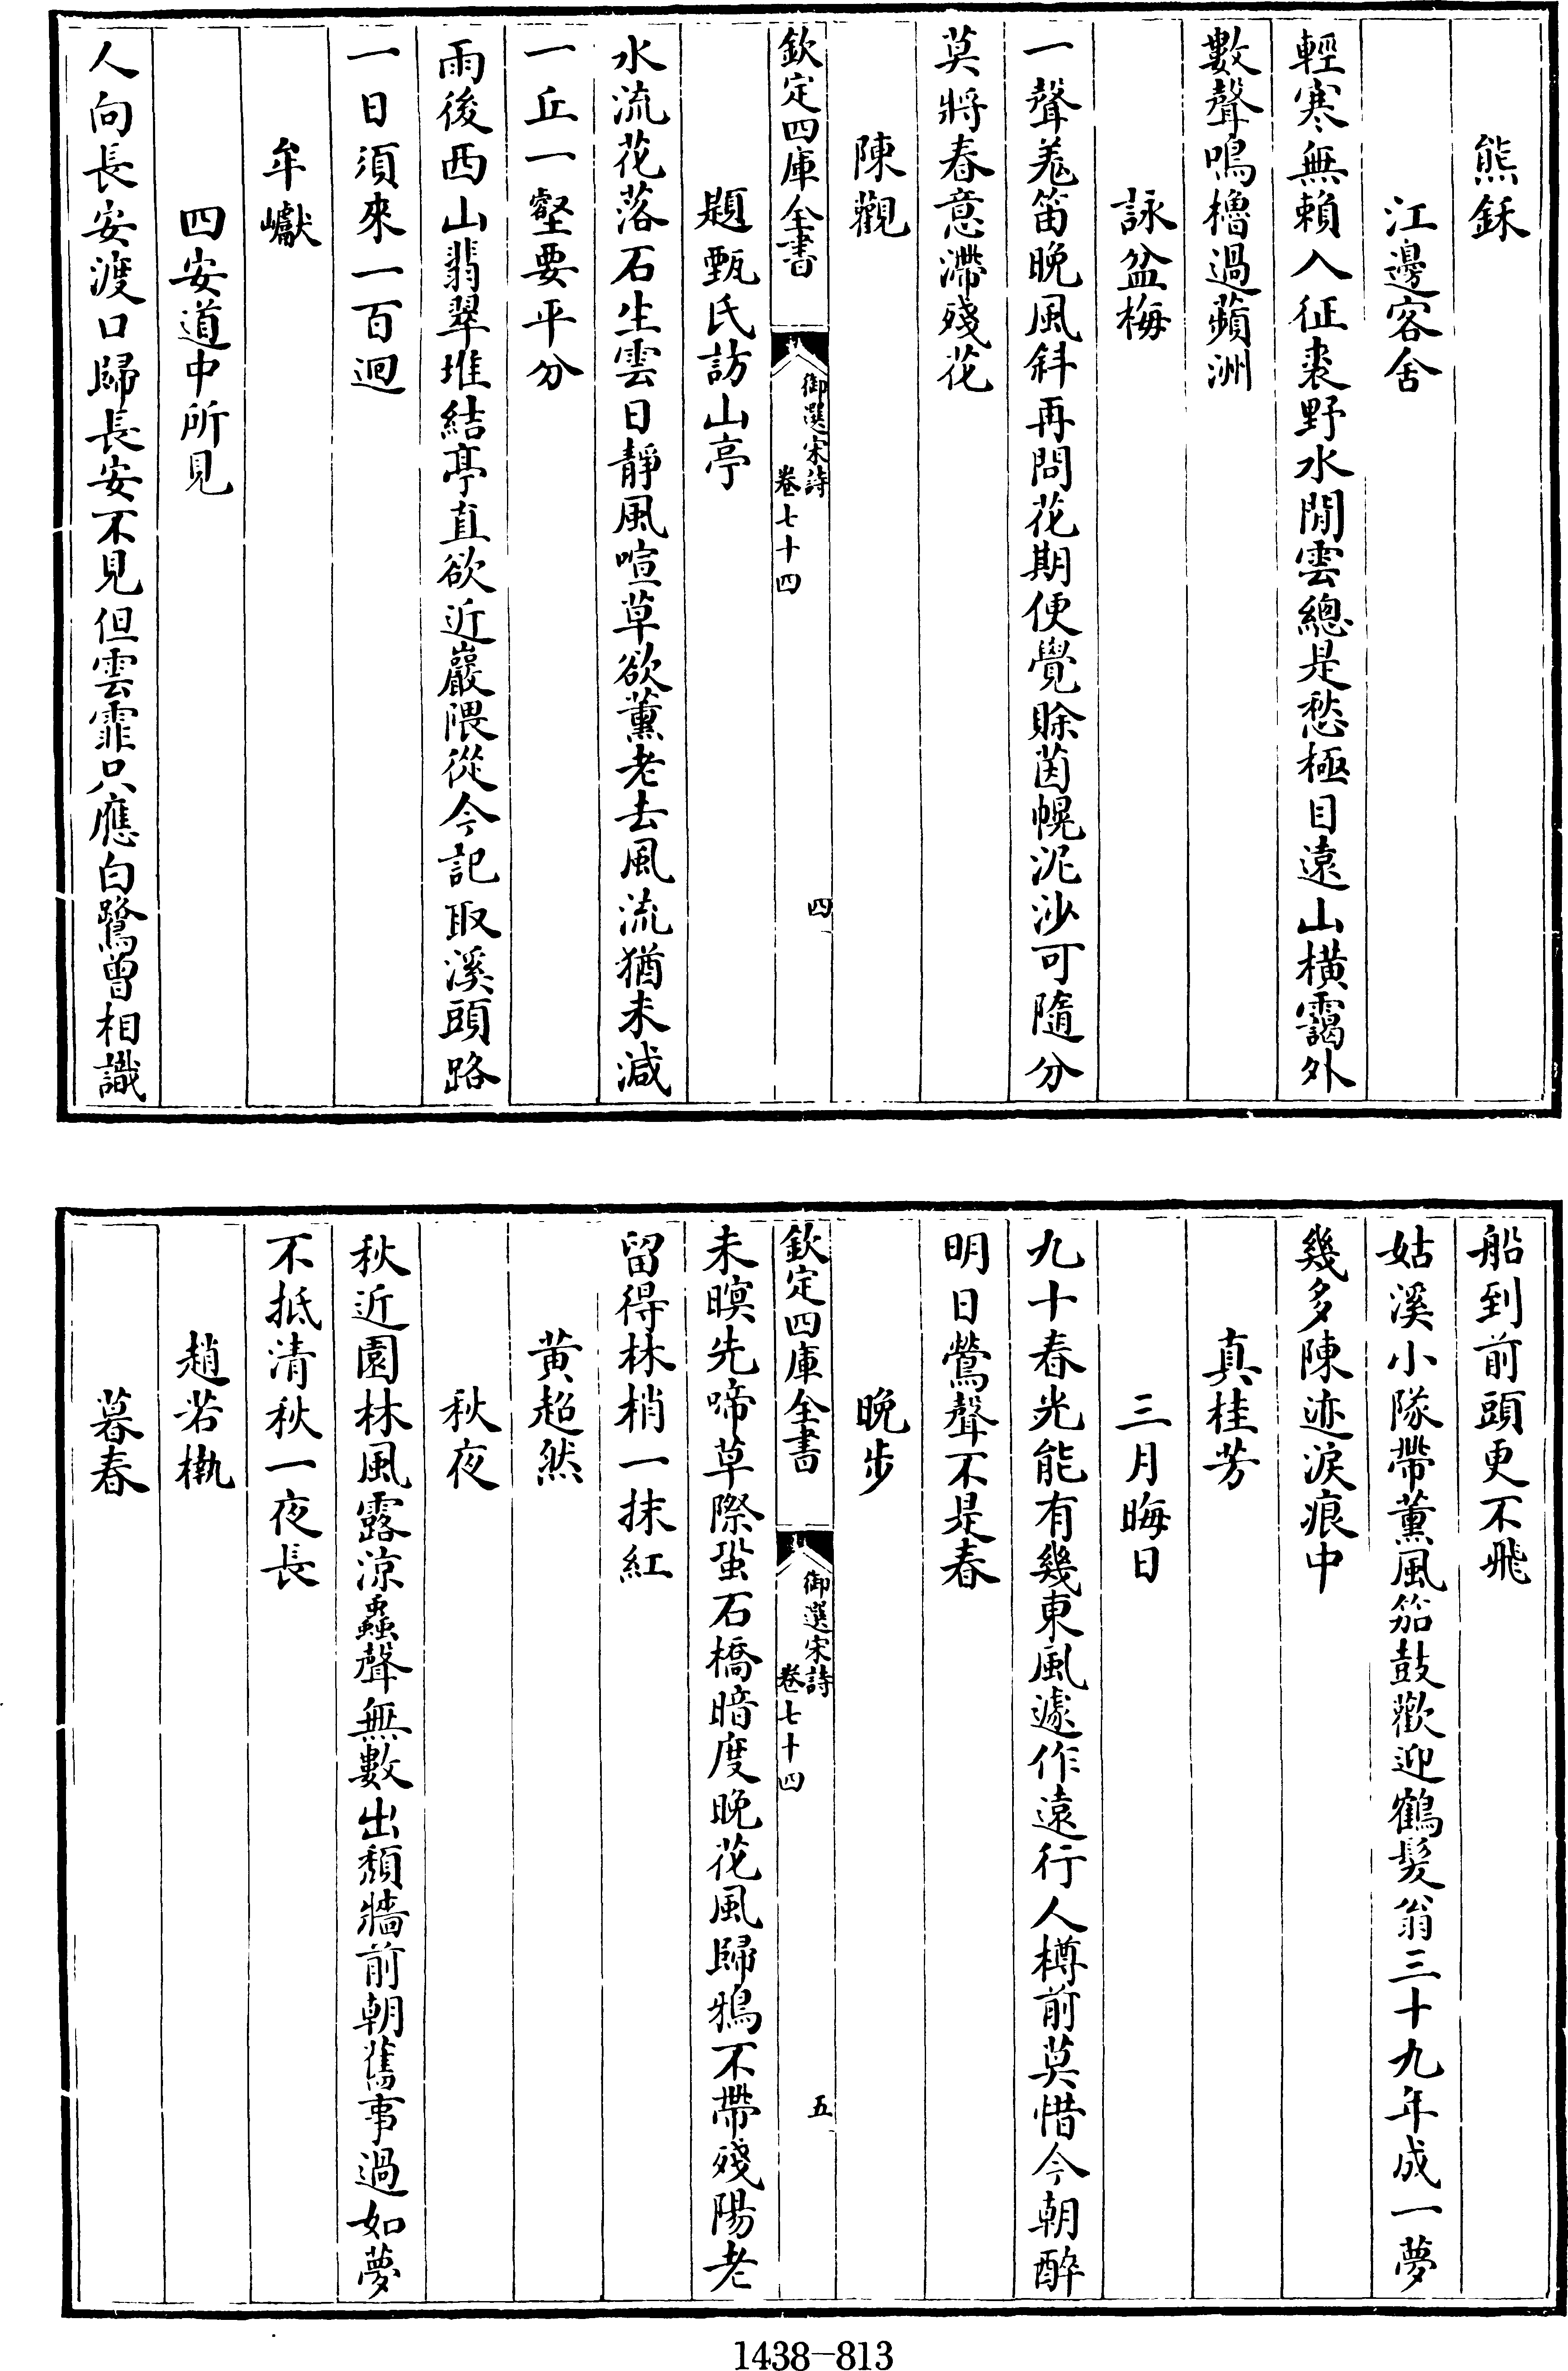 熊鉌
江邊客舍
輕寒無賴入征裘野水閒雲總是愁極目遠山橫靄外
數聲鳴櫓過蘋洲
詠盆梅
一聲羗笛晩風斜再問花期便覺賒茵幌泥沙可隨分
莫將春意滯殘花
陳觀
欽定四庫全書
御選宋詩
卷七十四
四
題甄氏訪山亭
水流花落石生雲日靜風喧草欲薰老去風流猶未減
一丘一壑要平分
雨後西山翡翠堆結亭直欲近巖隈從今記取溪頭路
一日須來一百迴
牟巘
四安道中所見
人向長安渡口歸長安不見但雲霏只應白鷺曾相識
船到前頭更不飛
姑溪小隊帶薰風笳鼓歡迎鶴髮翁三十九年成一夢
幾多陳迹淚痕中
真桂芳
三月晦日
九十春光能有幾東風遽作遠行人樽前莫惜今朝醉
明日鶯聲不是春
晩步
欽定四庫全書
御選宋詩
卷七十四
五
未暝先啼草際蛩石橋暗度晩花風歸鴉不帶殘陽老
留得林梢一抹紅
黄超然
秋夜
秋近園林風露涼蟲聲無數出頽牆前朝舊事過如夢
不抵清秋一夜長
趙若槸
暮春
1438-813